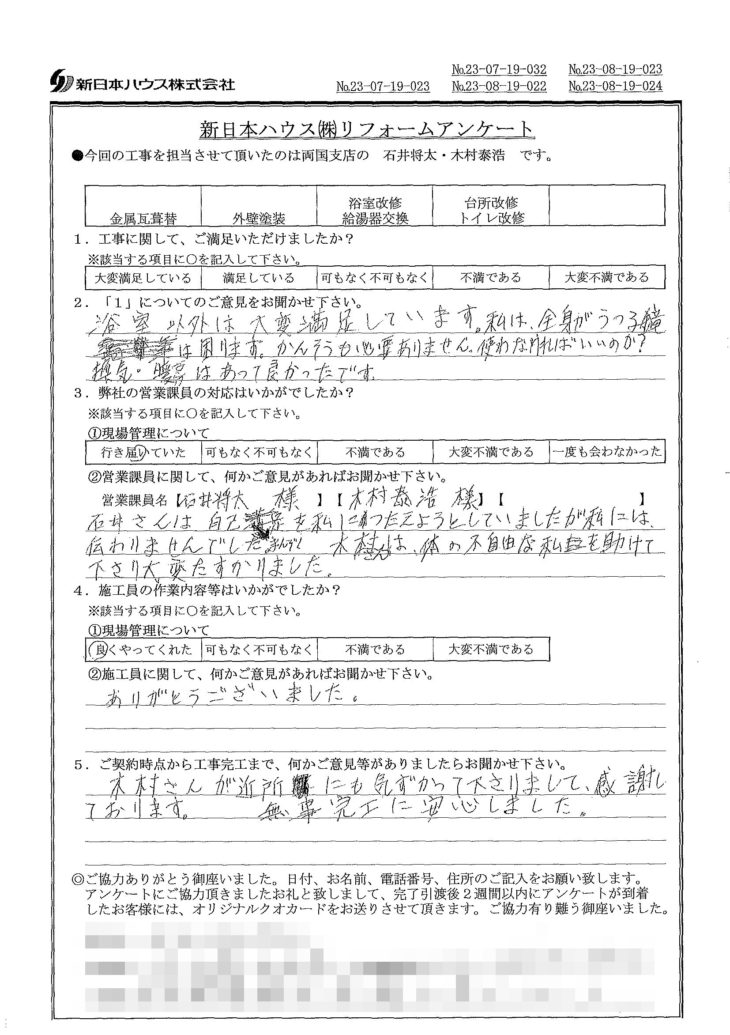 新日本ハウス株式会社
№23-07-19-032 №23-08-19-023
№23-07-19-023 №23-08-19-022 №23-08-19-024
新日本ハウス㈱リフォームアンケート
●今回の工事を担当させて頂いたのは両国支店の 石井将太・木村泰浩 です。
金属瓦葺替 外壁塗装 浴室改修 給湯器交換 台所改修 トイレ改修
1．工事に関して、ご満足いただけましたか？
※該当する項目に○を記入して下さい。
大変満足している 満足している 可もなく不可もなく 不満である 大変不満である
2．「1」についてのご意見をお聞かせ下さい。
浴室以外は大変満足しています。私は、全身がうつる鏡
は困ります。かんそうも必要ありません。使わなければいいのか？
換気・暖房はあって良かったです。
3．弊社の営業課員の対応はいかがでしたか？
※該当する項目に○を記入して下さい。
①現場管理について
行き届いていた 可もなく不可もなく 不満である 大変不満である 一度も会わなかった
②営業課員に関して、何かご意見があればお聞かせ下さい。
営業課員名【石井将太 様 】【木村泰浩 様】【 】
石井さんは自己を私につたえようとしていましたが私には、
伝わりませんでした。木村さんは、体の不自由な私を助けて
下さり大変たすかりました。
4．施工員の作業内容等はいかがでしたか？
※該当する項目に○を記入して下さい。
①現場管理について
良くやってくれた 可もなく不可もなく 不満である 大変不満である
②施工員に関して、何かご意見があればお聞かせ下さい。
ありがとうございました。
5．ご契約時点から工事完工まで、何かご意見等がありましたらお聞かせ下さい。
木村さんが近所にも気ずかって下さりまして、感謝し
ております。 無事完工に安心しました。
◎ご協力ありがとう御座いました。日付、お名前、電話番号、住所のご記入をお願い致します。
アンケートにご協力頂きましたお礼と致しまして、完了引渡後２週間以内にアンケートが到着
したお客様には、オリジナルクオカードをお送りさせて頂きます。ご協力有り難う御座いました。